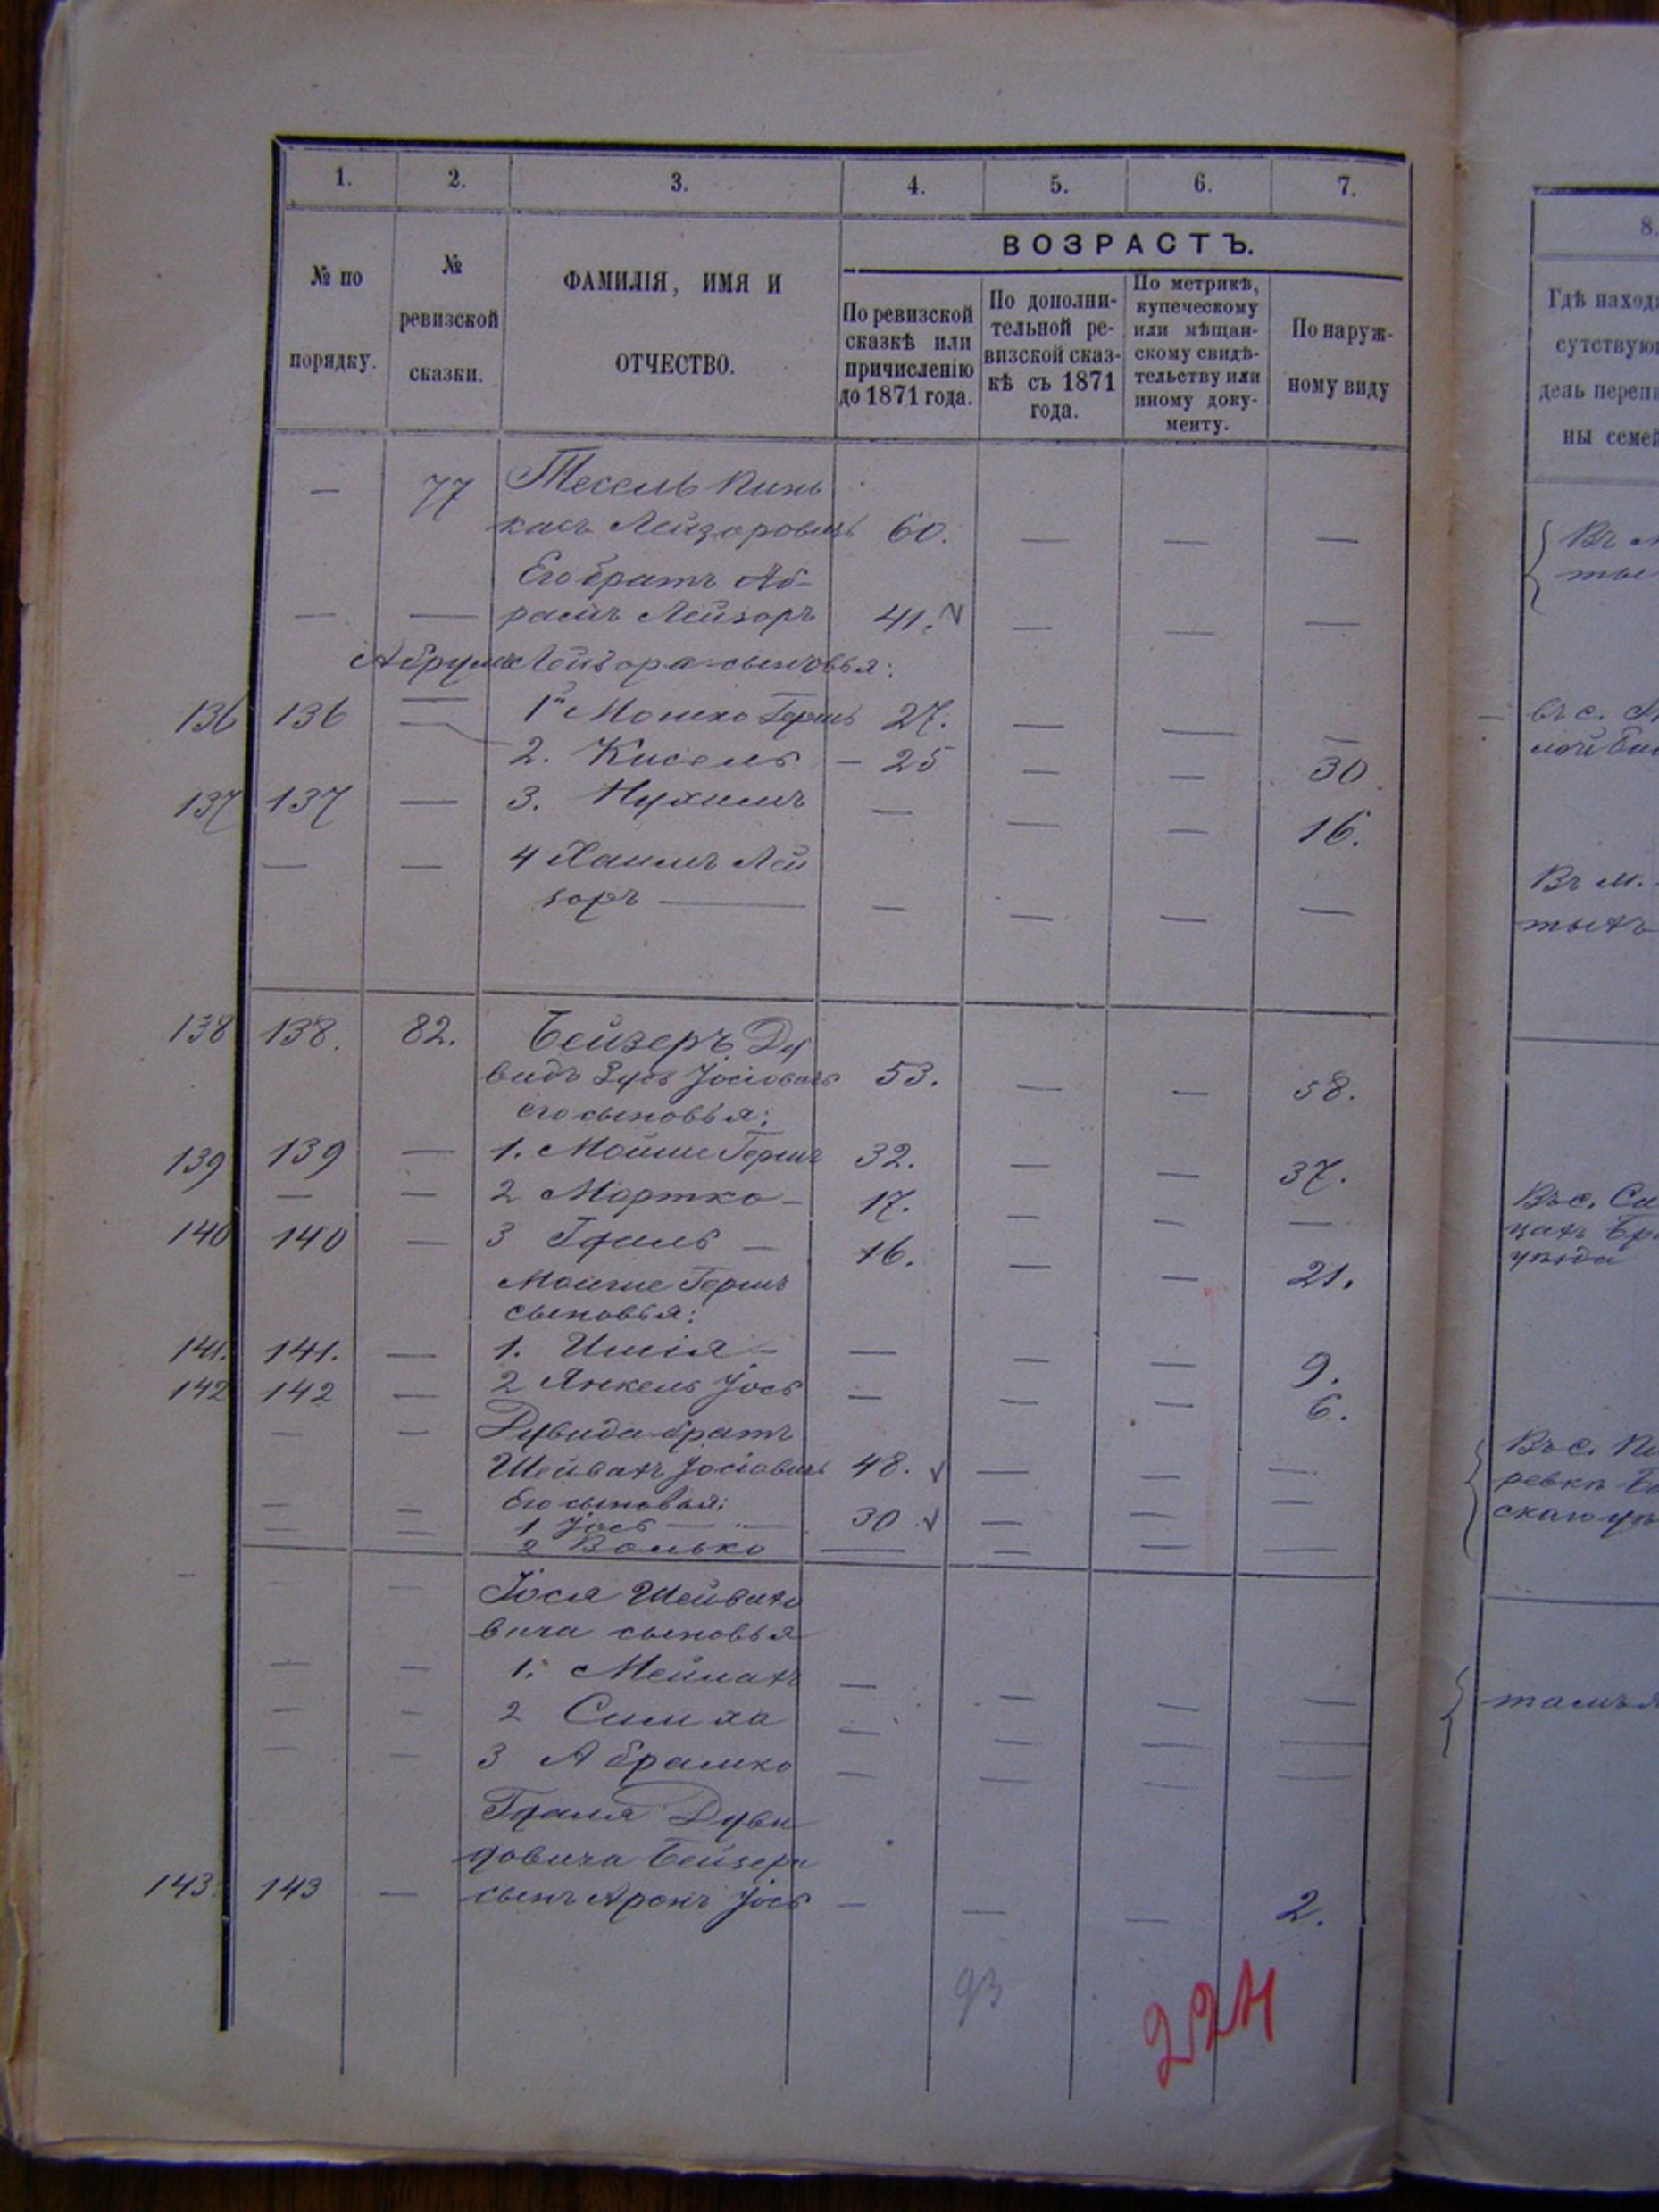 1. 2. 3. 4. 5. 6. 7.
№ по порядку.
№ ревизской сказки.
ФАМИЛІЯ, ИМЯ И ОТЧЕСТВО.
ВОЗРАСТЪ.
По ревизской сказкѣ или причисленію до 1871 года.
По дополнительной ревизской сказкѣ съ 1871 года.
По метрикѣ, купеческому или мѣщанскому свидѣтельству или иному документу.
По наружному виду
— 77 Тесель Пинь
касъ Лейзоровичъ 60. — — —
Его братъ Аб-
— — рамъ Лейзоръ 41. — — —
Абрума Лейзора сыновья:
136 136 — 1й Мошко Гершъ 27. — — —
2. Кисель — 25 — — 30
137 137 — 3. Нухимъ — — — 16.
— — 4 Хаимъ Лей
зоръ — — — — —
138 138. 82. Бейзеръ Ду
видъ Зусь Іосіовичъ 53. — — 58.
его сыновья:
139 139 — 1. Мойше Гершъ 32. — — 37.
— — 2 Мортко — 17. — — —
140 140 — 3 Гдаль — 16. — — 21.
Мойше Гершъ
сыновья:
141. 141. — 1. Ишія — — — — 9.
142 142 — 2 Янкель Іось — — — 6.
— — Дувида братъ
Шейвахъ Іосіовичъ 48. — — —
Его сыновья:
— — 1 Іось — 30 — — —
— — 2 Волько — — — —
— — Іося Шейвахо
вича сыновья
— — 1. Мейлахъ — — — —
— — 2 Симха — — — —
— — 3 Абрамко — — — —
Гдаля Дуви
довича Бейзера
143. 143 — сынъ Аронъ Іось — — — 2.
93
224
8.
Гдѣ наход
сутствую
день переп
ны семе
Въ м.
Въ с.
тыхъ
Въ с.
уѣзда
Въ с.
ревкѣ